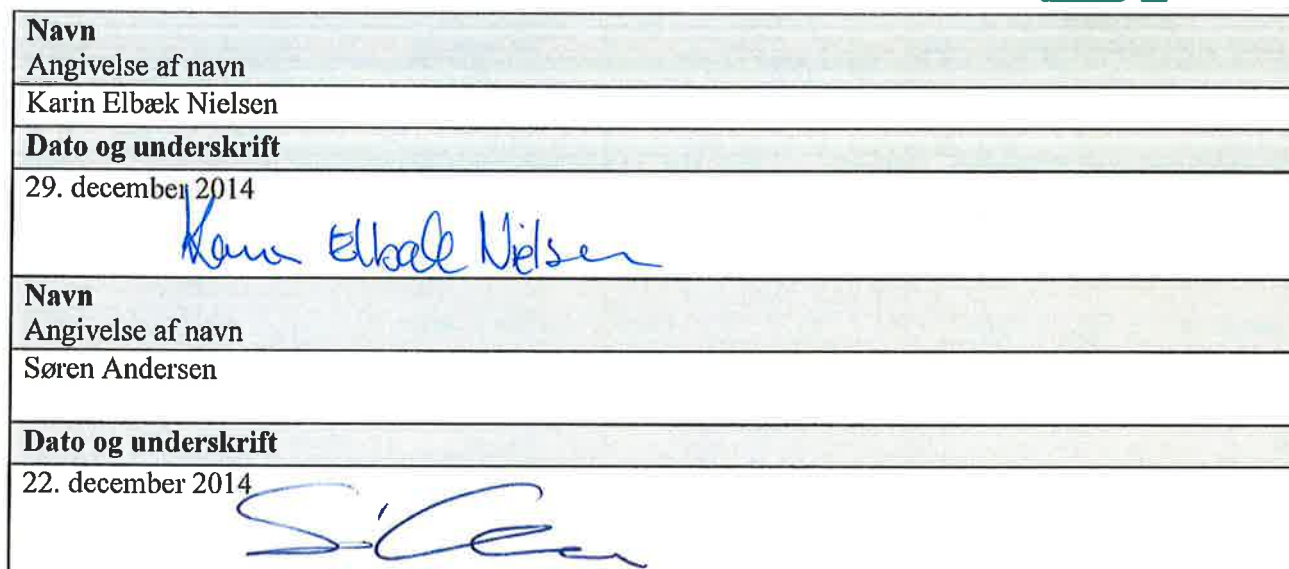 Navn
Angivelse af navn
Karin Elbæk Nielsen
Dato og underskrift
29. december 2014
Karin Elbæk Nielsen
Navn
Angivelse af navn
Søren Andersen
Dato og underskrift
22. december 2014